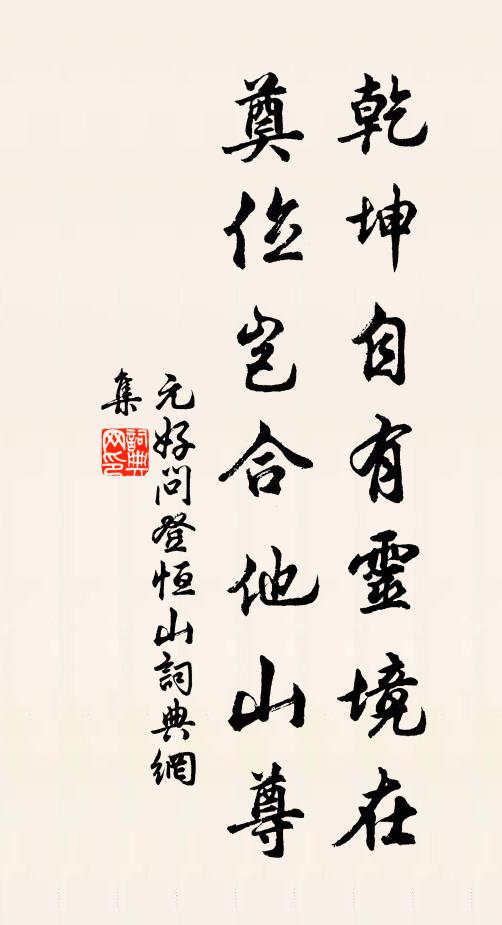 乾坤自有靈境在
奠位岂合他山尊
元好问登恒山詞典網
集
詞典
网印